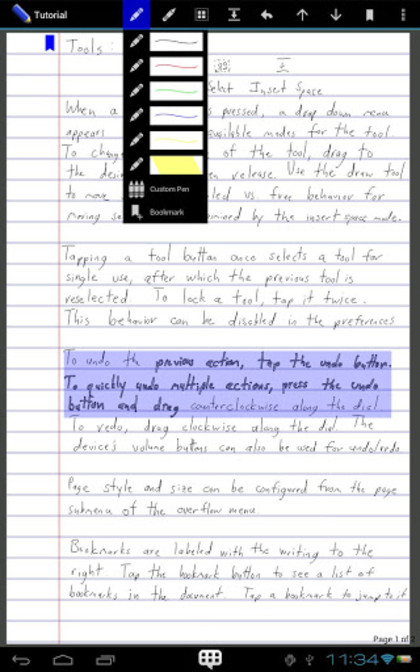 Tutorial
Tools :
Select Insert Space
When a pressed, a drop down menu
appears available modes for the tool.
To change of the tool, drag to
the release. Use the draw tool
to move vs. free behavior for
moving by the insert space mode.
Custom Pen
Bookmark
Tapping a tool button once selects a tool for
single use, after which the previous tool is
reselected To lock a tool, tap it twice.
This behavior can be disabled in the preferences
To undo the previous action, tap the undo button.
To quickly undo multiple actions, press the undo
button and drag counterclockwise along the dial
To redo, drag clockwise along the dial. The
device's volume buttons can also be used for undo/redo.
Page style and size can be configured from the page
submenu of the overflow menu.
Bookmarks are labeled with the writing to the
right Tap the bookmark button to see a list of
bookmarks in the document. Tap a bookmark to jump to it.
Page 1 of 2
11:34